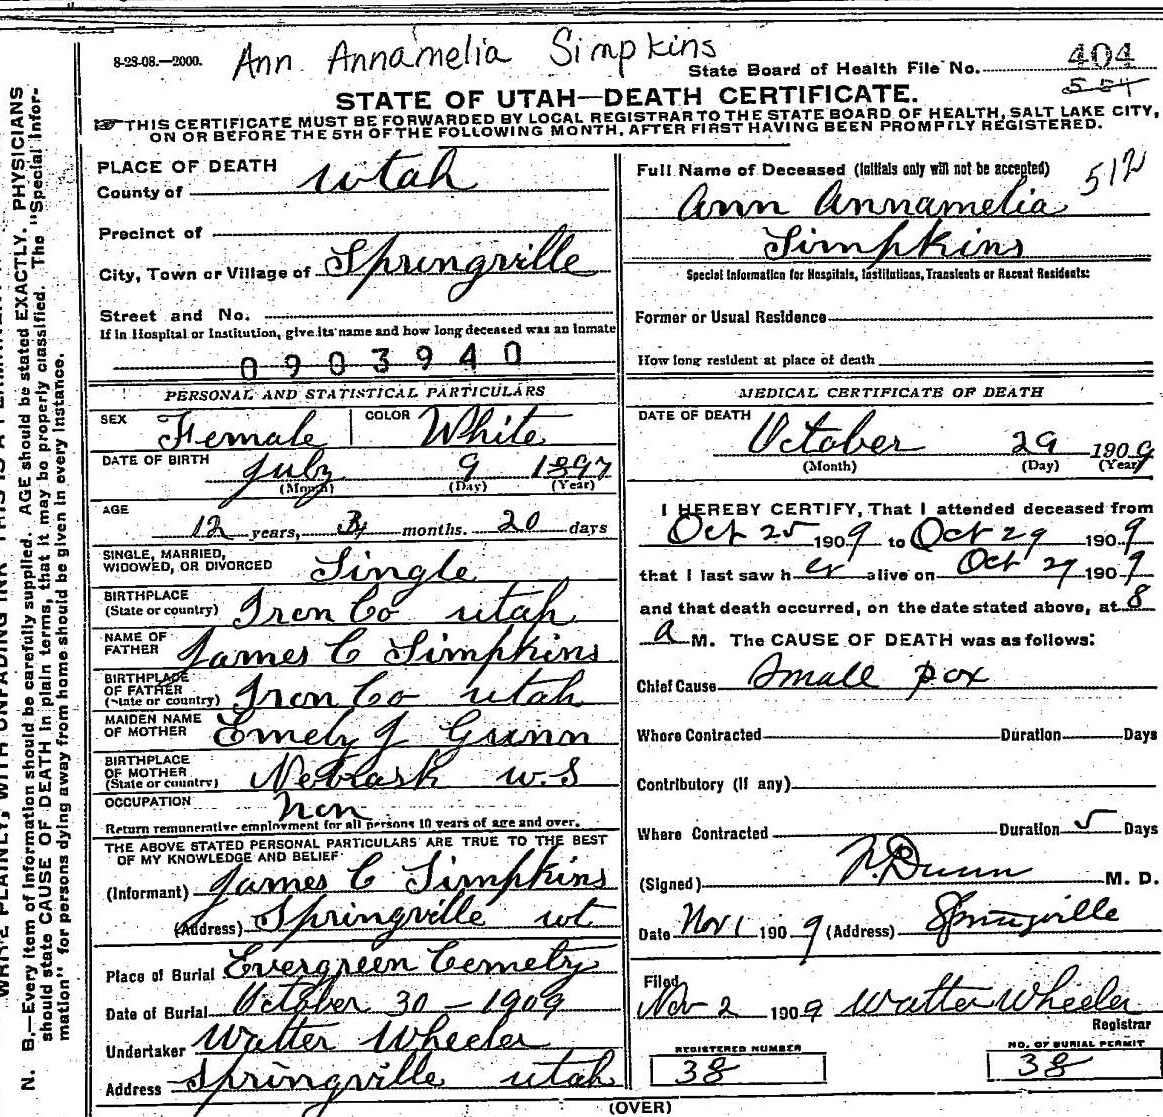 8-28-08.—2000. Ann Annamelia Simpkins
State Board of Health File No. 404
554
STATE OF UTAH—DEATH CERTIFICATE.
THIS CERTIFICATE MUST BE FORWARDED BY LOCAL REGISTRAR TO THE STATE BOARD OF HEALTH, SALT LAKE CITY,
ON OR BEFORE THE 5TH OF THE FOLLOWING MONTH, AFTER FIRST HAVING BEEN PROMPTLY REGISTERED.
N. B.—Every item of information should be carefully supplied. AGE should be stated EXACTLY. PHYSICIANS
should state CAUSE OF DEATH in plain terms, that it may be properly classified. The "Special Infor-
mation" for persons dying away from home should be given in every instance.
PLACE OF DEATH
County of Utah
Precinct of
City, Town or Village of Springville
Street and No.
If in Hospital or Institution, give its name and how long deceased was an inmate
0903940
PERSONAL AND STATISTICAL PARTICULARS
SEX Female COLOR White
DATE OF BIRTH July 9 1897
(Month) (Day) (Year)
AGE 12 years, 3 months. 20 days
SINGLE, MARRIED,
WIDOWED, OR DIVORCED Single
BIRTHPLACE
(State or country) Iron Co Utah
NAME OF
FATHER James C Simpkins
BIRTHPLACE
OF FATHER
(State or country) Iron Co Utah
MAIDEN NAME
OF MOTHER Emely J Gunn
BIRTHPLACE
OF MOTHER
(State or country) Nebrask U.S
OCCUPATION Non
Return remunerative employment for all persons 10 years of age and over.
THE ABOVE STATED PERSONAL PARTICULARS ARE TRUE TO THE BEST
OF MY KNOWLEDGE AND BELIEF
(Informant) James C Simpkins
(Address) Springville Ut
Place of Burial Evergreen Cemetry
Date of Burial October 30 — 1909
Undertaker Walter Wheeler
Address Springville Utah
Full Name of Deceased (Initials only will not be accepted) 512
Ann Annamelia
Simpkins
Special Information for Hospitals, Institutions, Transients or Recent Residents:
Former or Usual Residence
How long resident at place of death
MEDICAL CERTIFICATE OF DEATH
DATE OF DEATH October 29 1909
(Month) (Day) (Year)
I HEREBY CERTIFY, That I attended deceased from
Oct 25 1909 to Oct 29 1909
that I last saw her alive on Oct 29 1909
and that death occurred, on the date stated above, at 8
a M. The CAUSE OF DEATH was as follows:
Chief Cause Small pox
Where Contracted Duration Days
Contributory (if any)
Where Contracted Duration 5 Days
(Signed) Dunn M. D.
Date Nov 1 1909 (Address) Springville
Filed
Nov 2 1909 Walter Wheeler
Registrar
REGISTERED NUMBER NO. OF BURIAL PERMIT
38 38
(OVER)